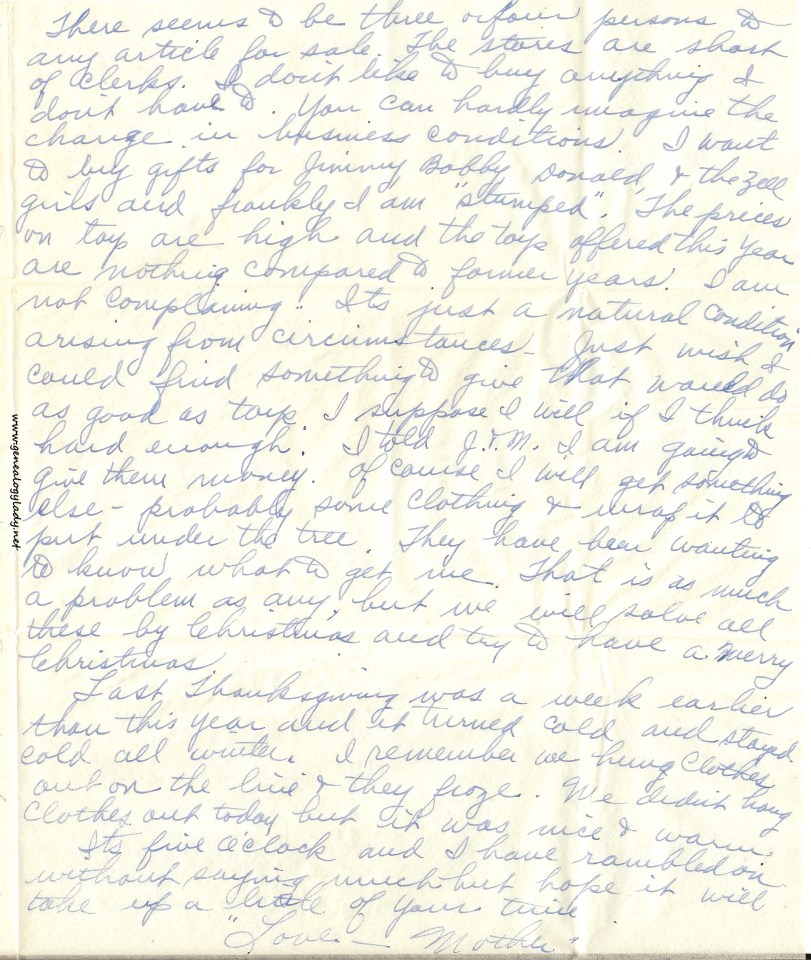 There seems to be three or four persons to
any article for sale. The stores are short
of clerks. I don't like to buy anything I
don't have to. You can hardly imagine the
change in business conditions. I want
to buy gifts for Jimmy Bobby, Donald, & the Zell
girls and frankly I am "stumped". The prices
on toys are high and the toys offered this year
are nothing compared to former years. I am
not complaining. Its just a natural condition
arising from circumstances - Just wish I
could find something to give that would do
as good as toys. I suppose I will if I think
hard enough. I told J. & M. I am going to
give them money. Of course I will get something
else - probably some clothing & wrap it to
put under the tree. They have been wanting
to know what to get me. That is as much
a problem as any, but we will solve all
these by Christmas and try to have a merry
Christmas.
Last Thanksgiving was a week earlier
than this year and it turned cold and stayed
cold all winter. I remember we hung clothes
out on the line & they froze. We didn't hang
clothes out today but it was nice & warm.
Its five o'clock and I have rambled on
without saying much but hope it will
take up a little of your time
"Love - Mother"
www.genealogylady.net